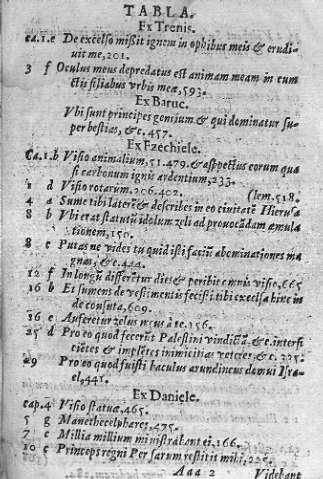 TABLA.
Ex Trenis.
ca.1.e De excelso missit ignem in ossibus meis & erudi-
uit me, 201.
3 f Oculus meus depredatus est animam meam in cun
ctis filiabus vrbis meæ, 593.
Ex Baruc.
Vbi sunt principes gentium & qui dominatur su-
per bestias, &c. 457.
Ex Ezechiele.
Ca.1.b Visio animalium, 51. 479. & aspectus eorum qua
si carbonum ignis ardentium, 233.
1 d Visio rotarum, 206. 402. (lem. 518.
4 a Sume tibi laterē & describes in eo civitatē Hierusa
8 b Vbi erat statutū idolum zeli ad prouocādam æmula
tionem, 150.
8 c Putas ne vides tu quid isti faciūt abominationes ma
gnas, &c. 424.
12 f In longū differētur dies & peribit omnis visio, 665
16 b Et sumens de vestimentis fecisti tibi excelsa hinc in
de consuta, 609.
16 e Auferetur zelus meus à te. 156.
25 d Pro eo quod fecerūt Palestini vindictā, &c. interfi-
ciētes & implētes inimicitias veteres, &c. 225.
29 Pro eo quod fuisti baculus arundineus domui Isra-
el, 441.
Ex Daniele.
cap.4 Visio statuæ, 465.
5 g Manethecelphares, 475.
7 c Millia millium ministrabant ei, 166.
10 c Princeps regni Persarum restitit mihi, 226.
Aaa 2 Videbant